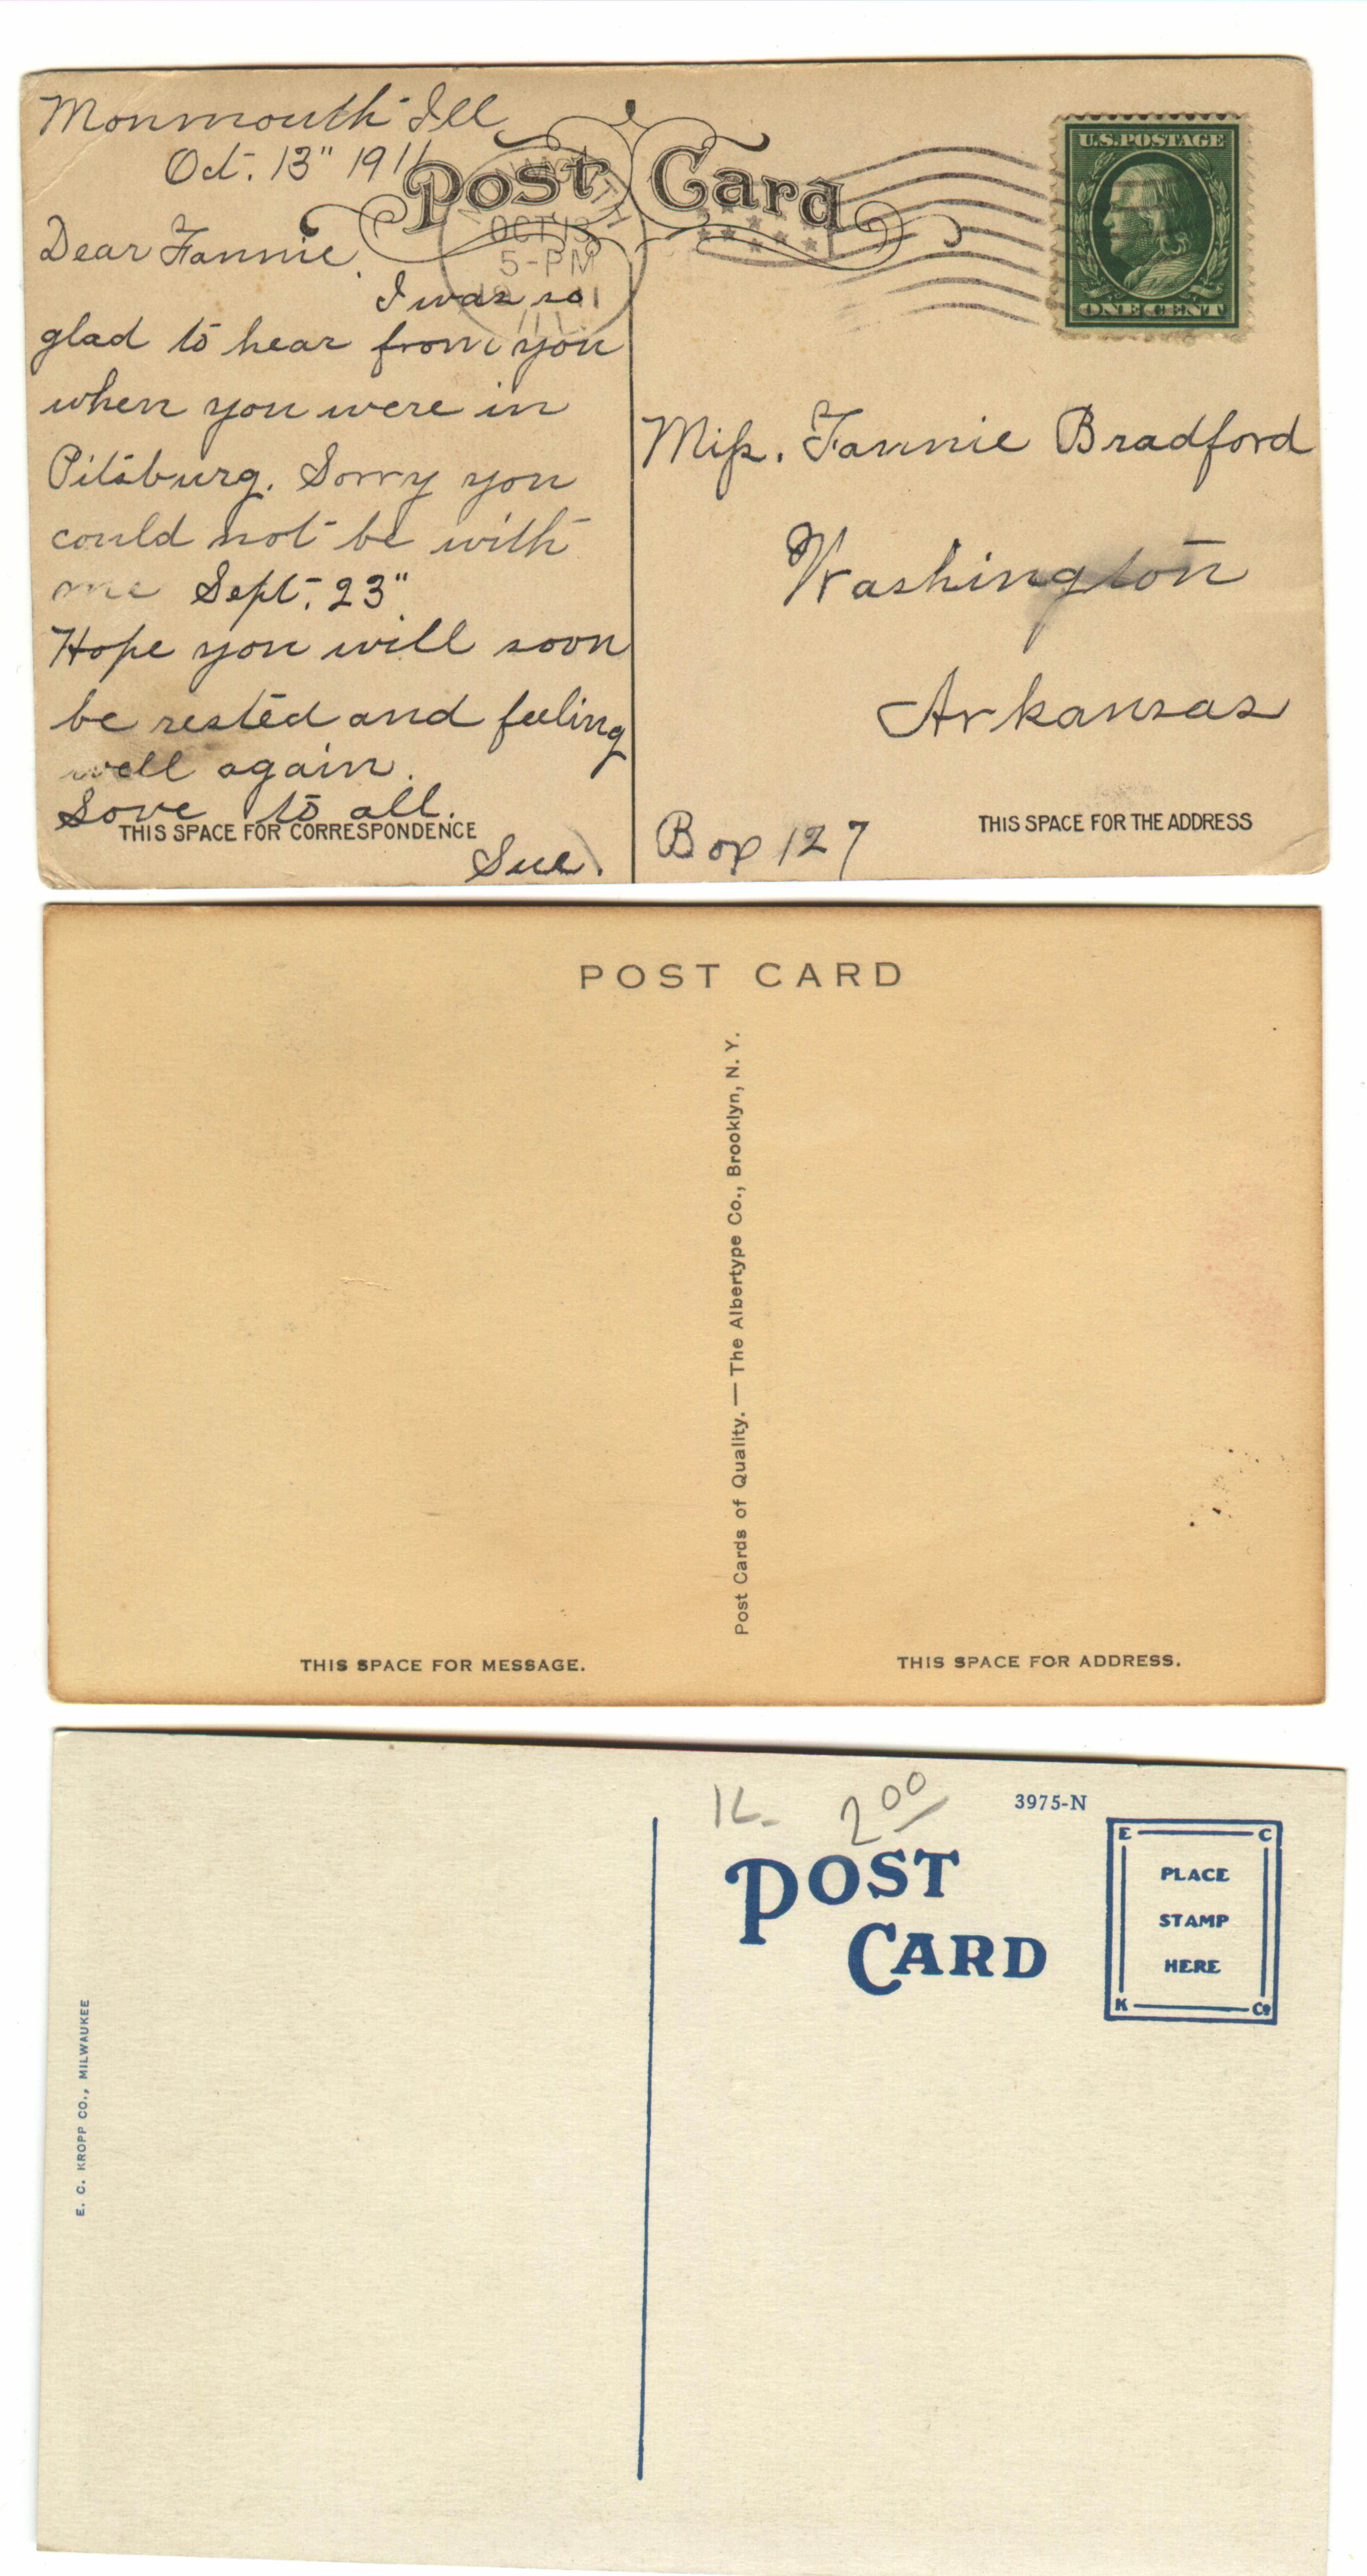 Monmouth Ill
Oct. 13" 1911
Post Card
OCT 13
5-PM
ILL.
U.S. POSTAGE
ONE CENT
Dear Fannie.
I was so
glad to hear from you
when you were in
Pitsburg. Sorry you
could not be with
me Sept. 23"
Hope you will soon
be rested and feeling
well again.
Love to all.
THIS SPACE FOR CORRESPONDENCE
Sue.
Miss. Fannie Bradford
Washington
Arkansas
THIS SPACE FOR THE ADDRESS
Box 127
POST CARD
Post Cards of Quality. — The Albertype Co., Brooklyn, N. Y.
THIS SPACE FOR MESSAGE.
THIS SPACE FOR ADDRESS.
IL. 2 00
3975-N
POST
CARD
E C
PLACE
STAMP
HERE
K Co
E. C. KROPP CO., MILWAUKEE